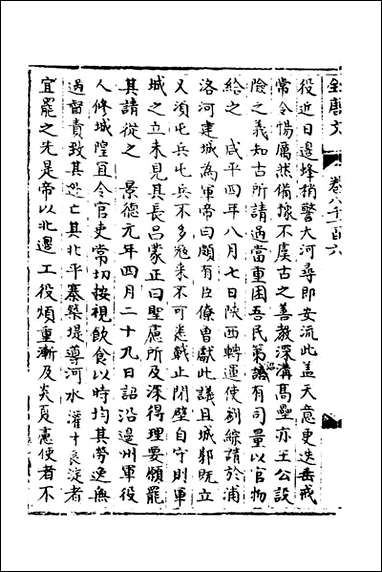 全唐文 卷八千一百六
役近日邊烽梢警大河尋即安流此蓋天意更迭垂戒
常令惕厲然備據不虞古之善教深溝髙壘亦王公設
險之義知古所請過當重困吾民第詔有司量以官物
給之 咸平四年八月七日陝西轉運使劉綜請於浦
洛河建城為軍帝曰頗有臣僚曾獻此議且城郭既立
又湏屯兵屯兵不多冦來不可悉戰止閉壁自守則軍
城之立未見其長吕蒙正曰聖慮所及深得理要願罷
其請從之 景德元年四月二十九日詔沿邊州軍役
人修城隍宜令官吏常切按視飲食以時均其勞逸無
過督責致其逃亡其北平寨築堤導河水灌十良淀者
宜罷之先是帝以北邊工役煩重漸及炎夏慮使者不